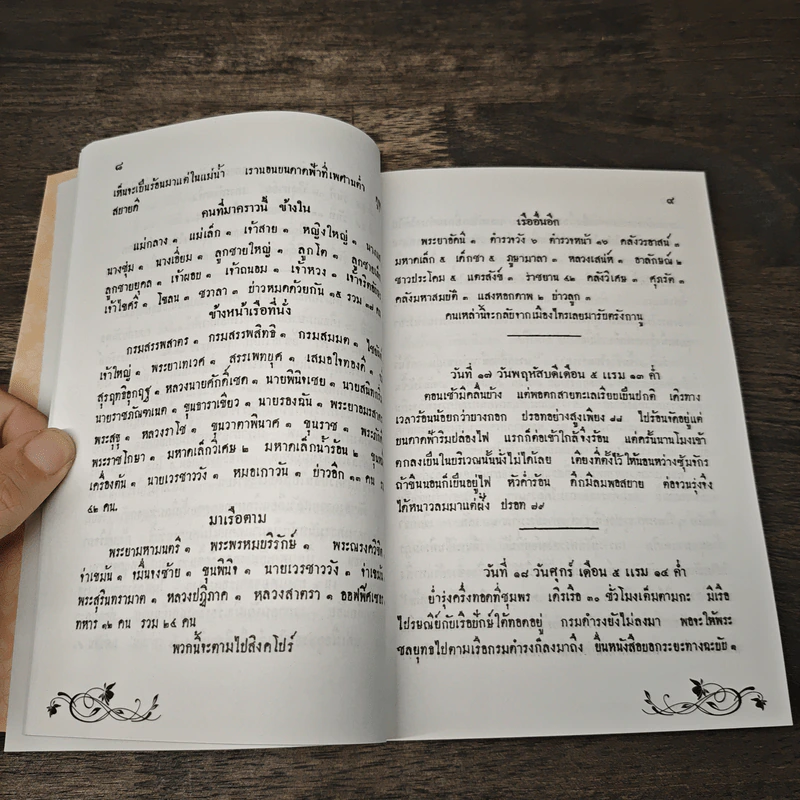 ๘
เห็นจะเย็นร้อนมาแต่ในแม่น้ำ เรานอนบนดาดฟ้าที่เพดานต่ำ
สบายดี
คนที่มาคราวนี้ ข้างใน
แม่กลาง ๑ แม่เล็ก ๑ เจ้าสาย ๑ หญิงใหญ่ ๑
นางชุ่ม ๑ นางเอี่ยม ๑ ลูกชายใหญ่ ๑ ลูกโต ๑
ลูกชายยุคล ๑ เจ้าผอบ ๑ เจ้าถนอม ๑ เจ้าหวง ๑
เจ้าไขศรี ๑ โขลน ๑ ชวาลา ๑ บ่าวหมดด้วยกัน ๑๕ รวม
ข้างหน้าเรือที่นั่ง
กรมสรรพสาตร ๑ กรมสรรพสิทธิ ๑ กรมสมมต ๑
เจ้าใหญ่ ๑ พระยาเทเวศ ๑ สรรเพทยุค ๑ เสมอใจทองดี ๑
สุรฤทธิ์ฤกฎฐ ๑ หลวงนายศักดิ์เชต ๑ นายพินิจเชย ๑
นายราชภัณฑ์เนต ๑ ขุนธาราเขียว ๑ นายรองฉัน ๑
พระสุชุ ๑ หลวงราโช ๑ ขุนวาตาพินาศ ๑ ขุนราช ๑
พระราชโกษา ๑ มหาดเล็กวิเศษ ๒ มหาดเล็กน้ำร้อน ๒
เครื่องต้น ๑ นายเวรชาววัง ๑ หมอเกาวัน ๑ บ่าวอีก ๑๓ คน
๔๒ คน.
มาเรือตาม
พระยามหามนตรี ๑ พระพรหมบริรักษ์ ๑ พระณรงควิชิต
จ่าเขมัน ๑ หมื่นจงซ้าย ๑ ขุนพินิจ ๑ นายเวรชาววัง ๑
พระสุรินทรามาต ๑ หลวงปฏิภาค ๑ หลวงสาตรา ๑
ทหาร ๑๒ คน รวม ๒๕ คน
พวกนี้จะตามไปสิงคโปร์
๙
เรืออื่นอีก
พระยาอัคนี ๑ ตำรวจวัง ๖ ตำรวจหน้า ๑๖ คลังวรอาสน์ ๑
มหาดเล็ก ๕ เด็กชา ๕ ภูษามาลา ๑ หลวงเสน่ห์ ๑ อาลักษณ์ ๒
ชาวประโคม ๕ แตรสังข์ ๑ ราชยาน ๔๒ คลังวิเศษ ๑ ศุภรัต ๑
คลังมหาสมบัติ ๑ แสงหอกดาพ ๒ บ่าวลูก ๑
คนเหล่านี้จะกลับจากเมืองไทรเลยมารับตรังกานู
วันที่ ๑๗ วันพฤหัสบดีเดือน ๕ แรม ๑๓ ค่ำ
ตอนเช้ามีคลื่นบ้าง แต่พอตกสายทะเลเรียบเย็นปกติ เดิรทาง
เวลาร้อนน้อยกว่าบางกอก ปรอทอย่างสูงเพียง ๘๘ ไปร้อนจัดอยู่แต่
บนดาดฟ้าริมปล่องไฟ แรกก็ต่อเข้าใกล้จึงร้อน แต่ครั้นนานโมงเข้า
ตกลงเย็นในบริเวณนั้นนั่งไม่ได้เลย เตียงที่ตั้งไว้ให้นอนหว่างซุ้มจักร
ถ้าขืนนอนก็เย็นอยู่ไฟ หัวค่ำร้อน ดึกมีลมพอสบาย ต่อจวนรุ่งจึง
ได้หนาวลมมาแต่ฝั่ง ปรอท ๗๙
วันที่ ๑๘ วันศุกร์ เดือน ๕ แรม ๑๔ ค่ำ
ย่ำรุ่งครึ่งทอดที่ชุมพร เดิรเรือ ๓๐ ชั่วโมงเต็มตามกะ มีเรือ
ไปรษณีย์กับเรือยักษ์ได้ทอดอยู่ กรมดำรงยังไม่ลงมา พอจะให้พระ
ชลยุทธไปตามเรือกรมดำรงก็ลงมาถึง ยื่นหนังสือบอกระยะทางฉบับ ๑